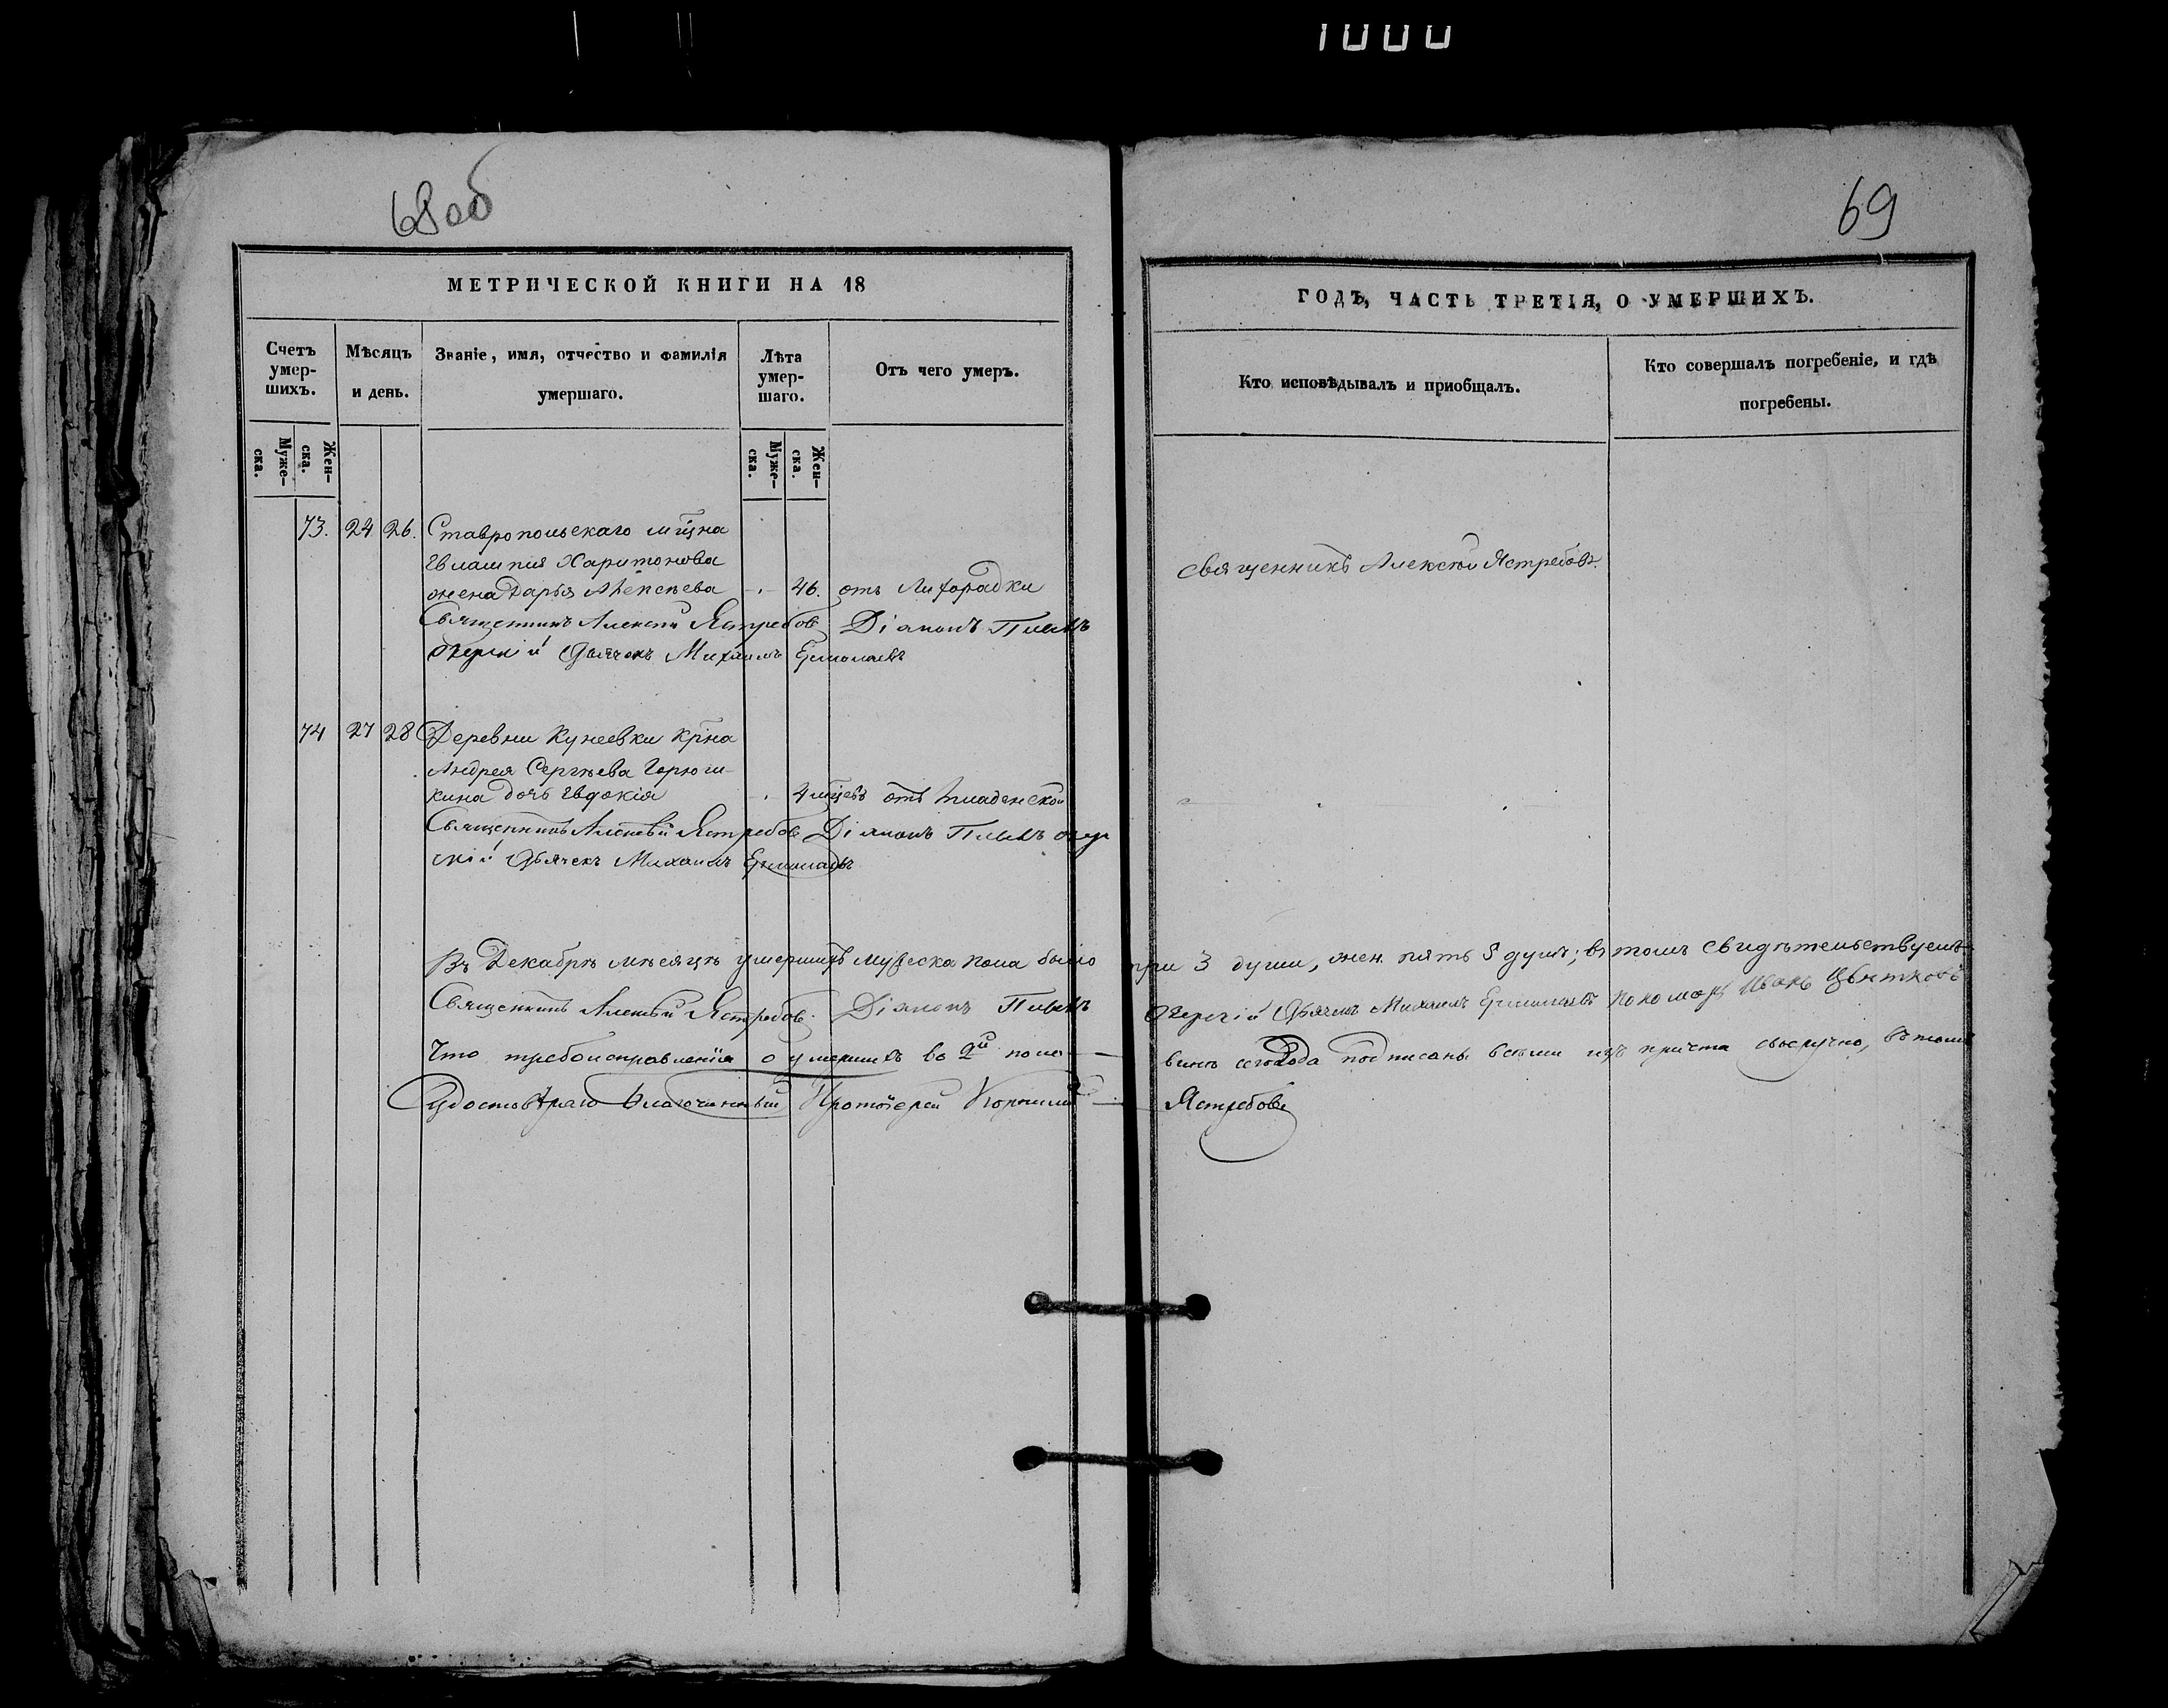 1000
68об
69
МЕТРИЧЕСКОЙ КНИГИ НА 18
ГОДЪ, ЧАСТЬ ТРЕТІЯ, О УМЕРШИХЪ.
Счетъ умер-шихъ.
Мѣсяцъ и день.
Званіе, имя, отчество и фамилія умершаго.
Лѣта умер-шаго.
Отъ чего умеръ.
Кто исповѣдывалъ и пріобщалъ.
Кто совершалъ погребеніе, и гдѣ погребены.
Муже-ска.
Жен-ска.
Муже-ска.
Жен-ска.
73. 24 26. Ставропольскаго мщна
Евлампія Харитонова
жена Дарья Алексѣева 46. отъ Лихорадки
Священникъ Алексѣй Ястребовъ
Священникъ Алексѣй Ястребовъ Діаконъ
Дьячекъ Михаилъ Ермолаевъ
74 27 28 Деревни Кунеевки крна
Андрея Сергѣева Горюш-
кина дочь Евдокія 4 мцевъ отъ младенской
Священникъ Алексѣй Ястребовъ Діаконъ
Дьячекъ Михаилъ Ермолаевъ
Въ Декабрѣ мѣсяцѣ умершихъ мужеска пола было три 3 души, жен. пять 5 душъ; въ томъ свидѣтельствуемъ
Священникъ Алексѣй Ястребовъ. Діаконъ Дьячекъ Михаилъ Ермолаевъ пономарь Иванъ Цвѣтковъ
Что требоисправленія о умершихъ во 2й поло-винѣ сего года подписаны всѣми изъ причта своеручно, въ томъ
Удостовѣряю Благочинный Протоіерей Корнилій Ястребовъ